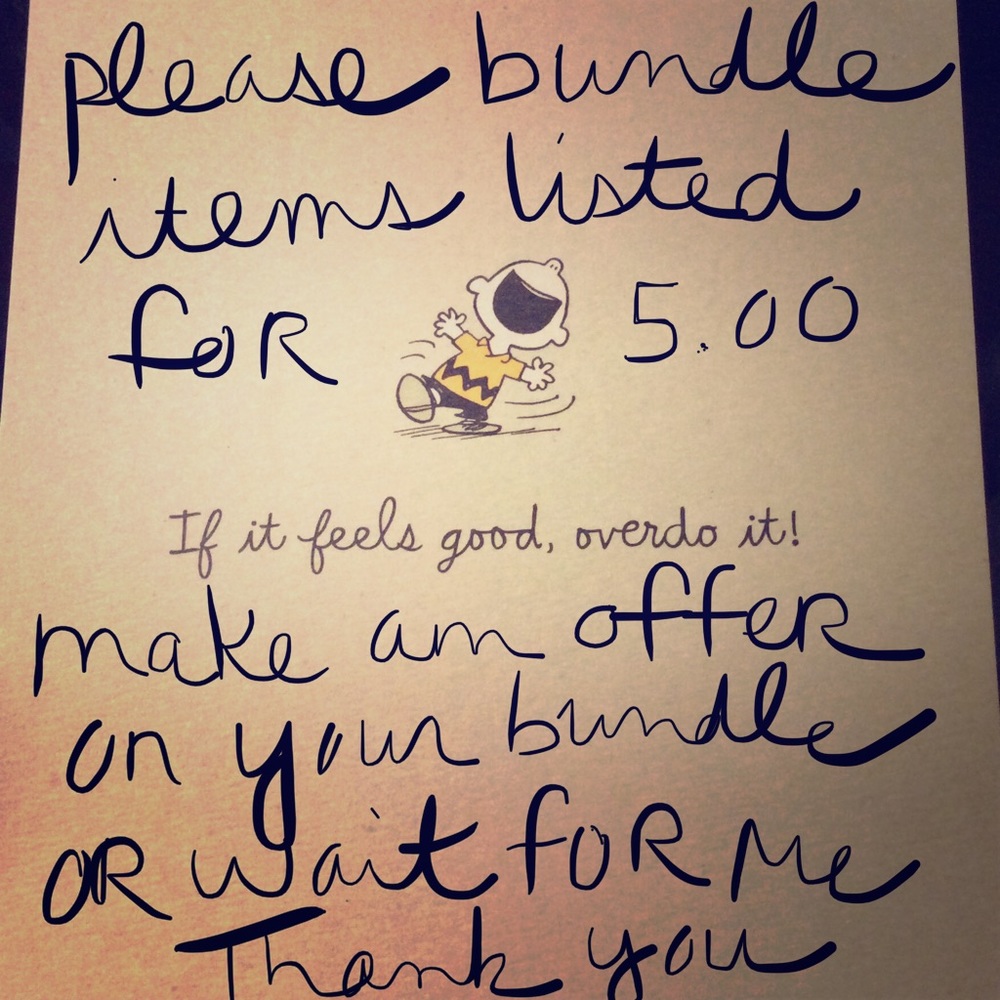 please bundle
items listed
foR 5.00
If it feels good, overdo it!
make an offeR
on your bundle
OR wait foR Me
Thank you